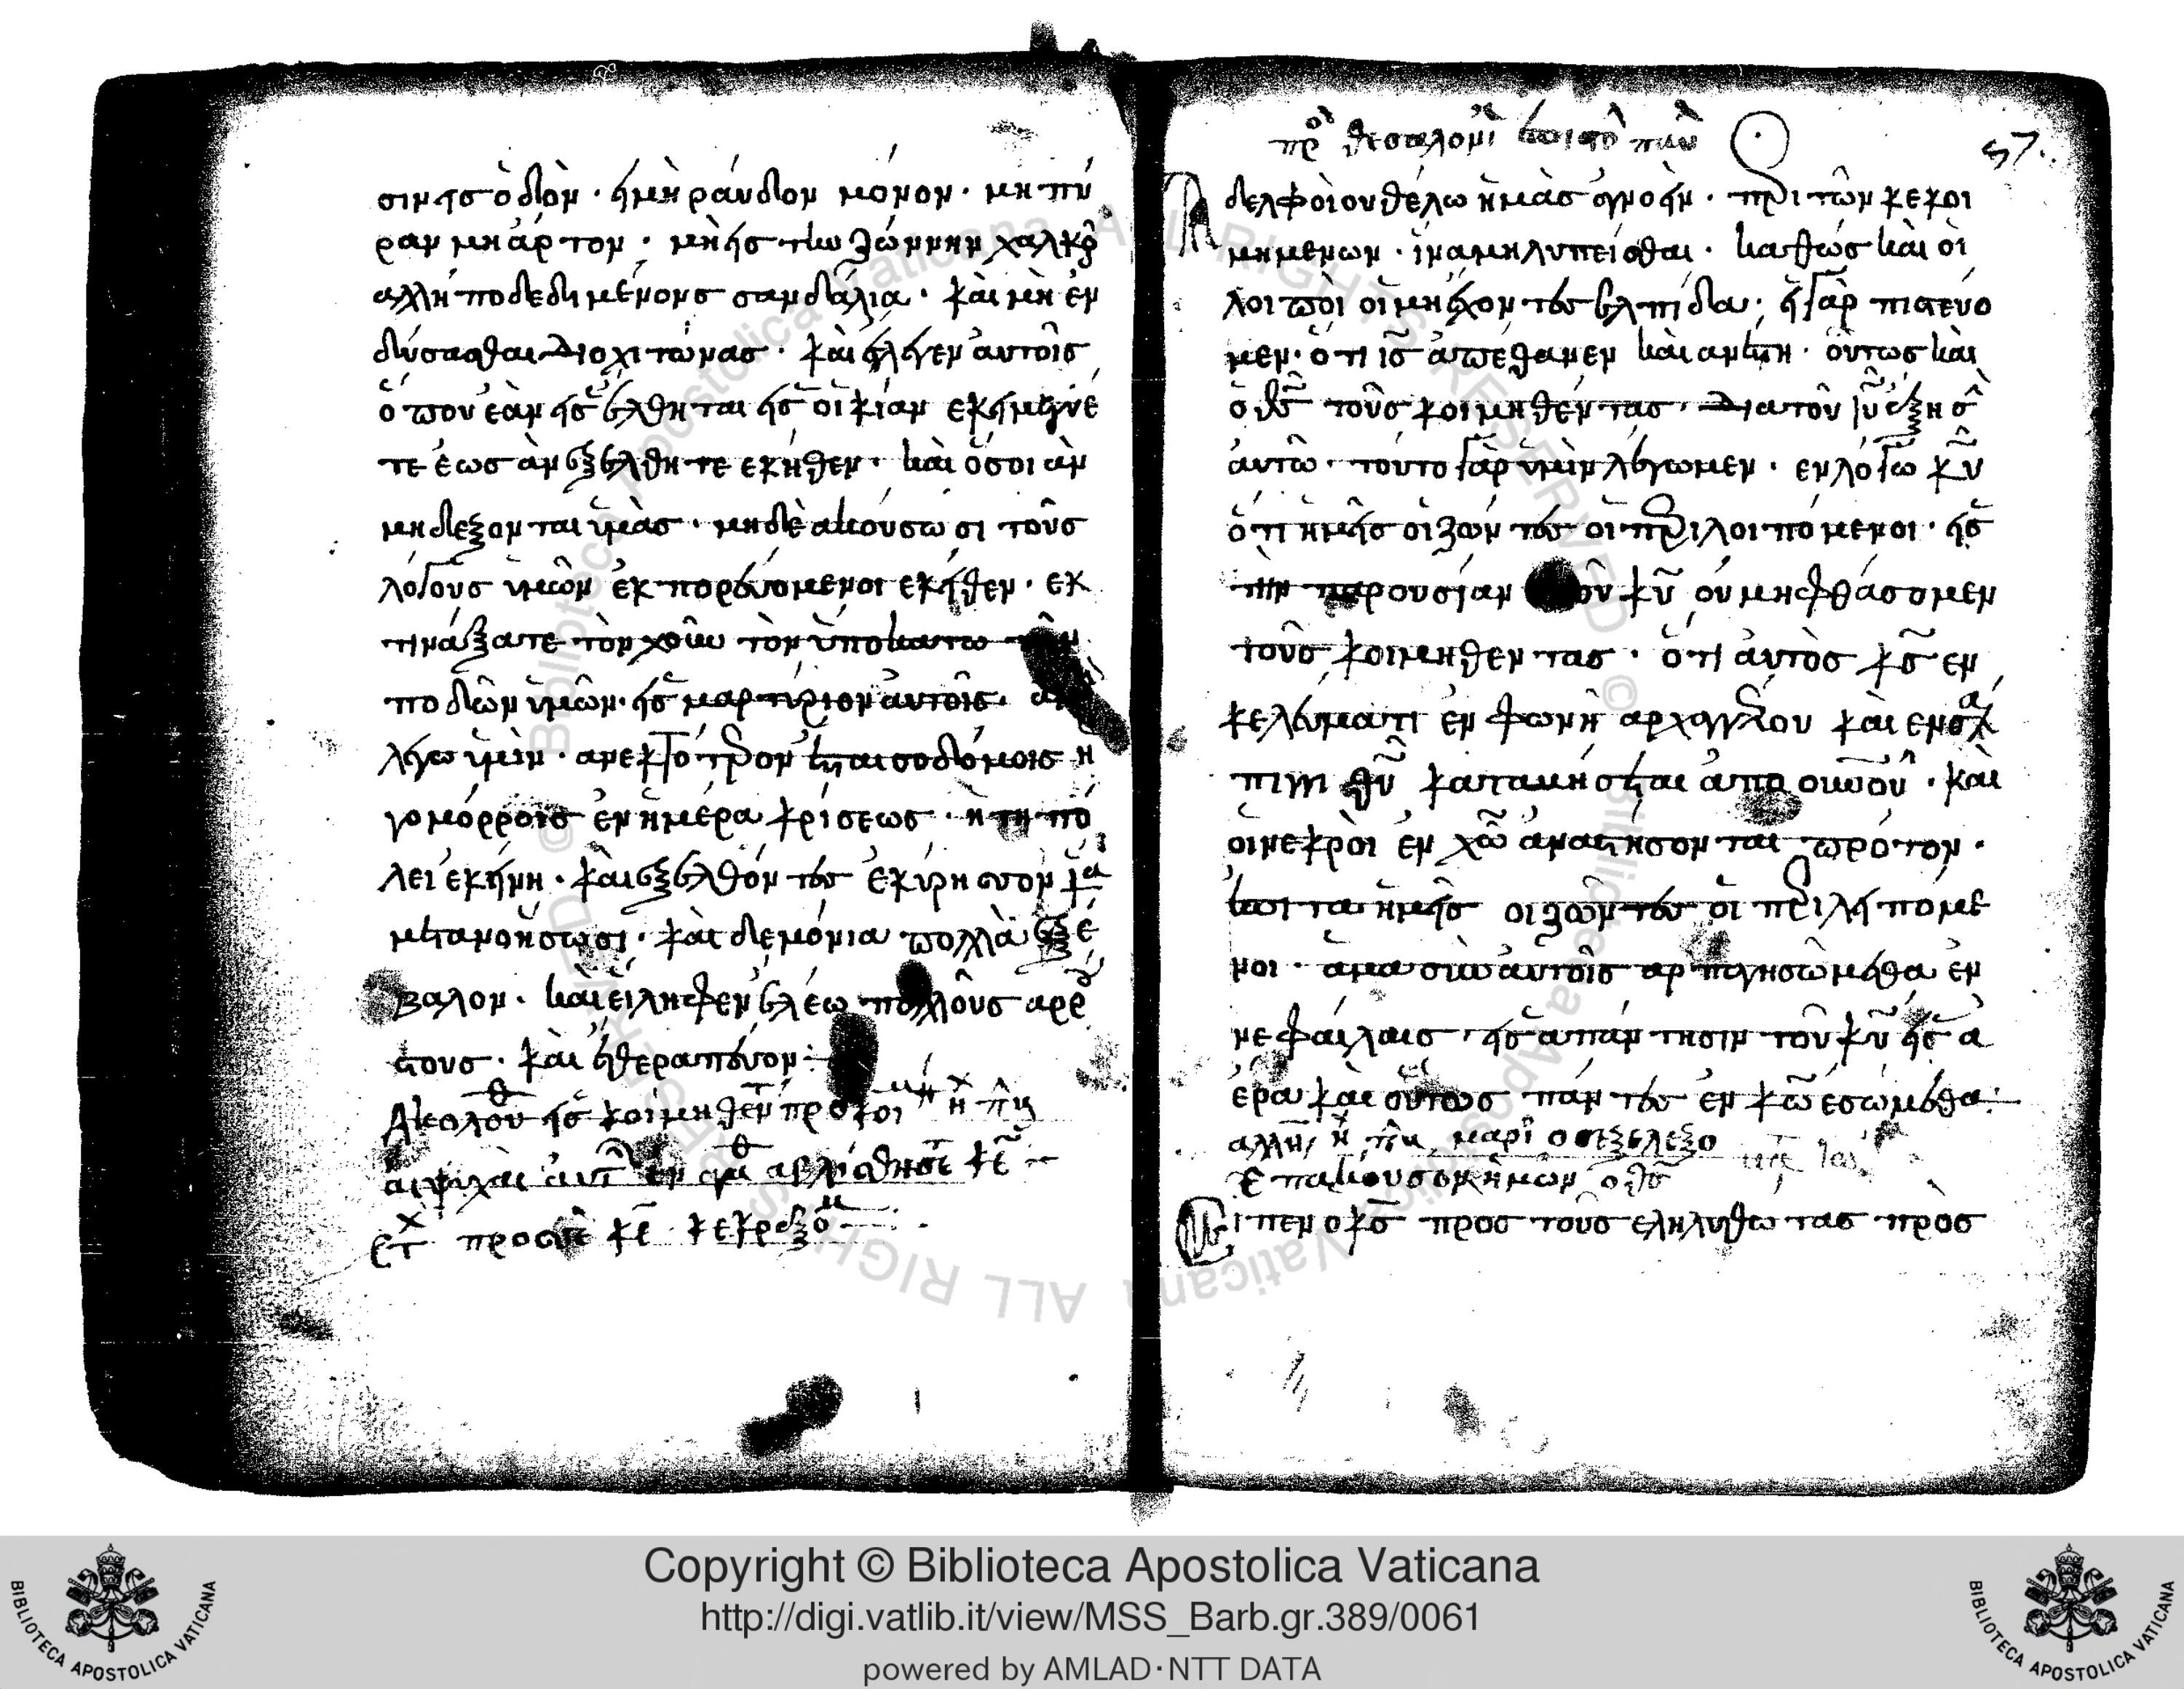 σιν εἰς ὁδὸν · εἰ μὴ ράυδον μόνον · μὴ πή
ραν μὴ άρτον · μὴ εἰς τὴν ζώννην χαλκὸ
αλλη ποδεδημένους σανδάλια · καὶ μὴ ἐν
δύσασθαι διο χιτώνας · καὶ έλεγεν αυτοῖς
ὅπου ἐὰν εἰς έλθηται εἰς οἰκίαν εκεί μένε
τε έως ὰν ἐξέλθητε εκείθεν · καὶ όσοι ὰν
μη δεξονται υμὰς · μηδὲ ακούσωσι τοῦς
λόγους υμῶν ἐκπορευομενοι εκείθεν · εκ
τινάξατε τὸν χοῦν τὸν ὑποκατω τῶν
ποδῶν υμῶν · εἰς μαρτύριον αυτοῖς ·
λέγω υμὶν · ανεκτότερον έσται σοδόμοις ἢ
γομόρροις ἐν ἡμέρα κρίσεως · ἢ τη πό
λει ἐκείνη · καὶ εξελθόντες ἐκύρησσον ἵνα
μετανοήσωσι · καὶ δεμόνια πολλὰ ἐξέ
βαλον · καὶ είληφεν ελέω πολλοῦς αρὁ
στους · καὶ εθεραπευον :
Ακολου εἰς κοιμηθεν προκοι
αι ψιχαὶ αυτ εν
προς κε κεκραξο
πρ θεσαλονι
57
Αδελφοὶ ου θέλω ἡμὰς αγνοείν · περι τῶν κεκοι
μημενων · ἱνα μη λυπείσθαι · καθὼς καὶ οἱ
λοιποὶ οἱ μὴ έχοντες ελπιδα · εἰ γὰρ πιστεύο
μεν · ότι ις ἀπεθανεν καὶ ανέστη · οὕτως καὶ
ὁ θς τοῦς κοιμηθέντας · δια τοῦ ιυ άξη σ
ἀυτῶ · τουτο γὰρ υμὶν λέγωμεν · εν λόγω κυ
ότι ἡμεῖς οἱ ζῶντες οἱ περιλοιπόμενοι · εἰς
τὴν παρουσίαν τοῦ κυ ού μη φθάσομεν
τοῦς κοιμηθεντας · ότι αυτὸς κς εν
κελεύματι ἐν φωνὴ αρχαγγέλου καὶ εν σαλ
πιγγι θυ καταβήσεται ἀπο ουνου · καὶ
οἱ νεκροὶ ἐν χω ἀναστήσονται πρότον ·
έπιτα ἡμεῖς οἱ ζῶντες οἱ περιλειπόμε
νοι · άμα σὺν αυτοῖς αρπαγησώμεθα ἐν
νεφαίλαις · εἰς απάντησιν τοῦ κυ εἰς α
έρα καὶ ούτως πάντες ἐν κω εσώμεθα :
αλλη μαρι ο εξελεξο
Επακουσον ἡμῶν ο θς
Ειπεν ο κς προς τους εληλυθωτας πρὸς
Copyright © Biblioteca Apostolica Vaticana
http://digi.vatlib.it/view/MSS_Barb.gr.389/0061
powered by AMLAD·NTT DATA
BIBLIOTECA APOSTOLICA VATICANA
BIBLIOTECA APOSTOLICA VATICANA